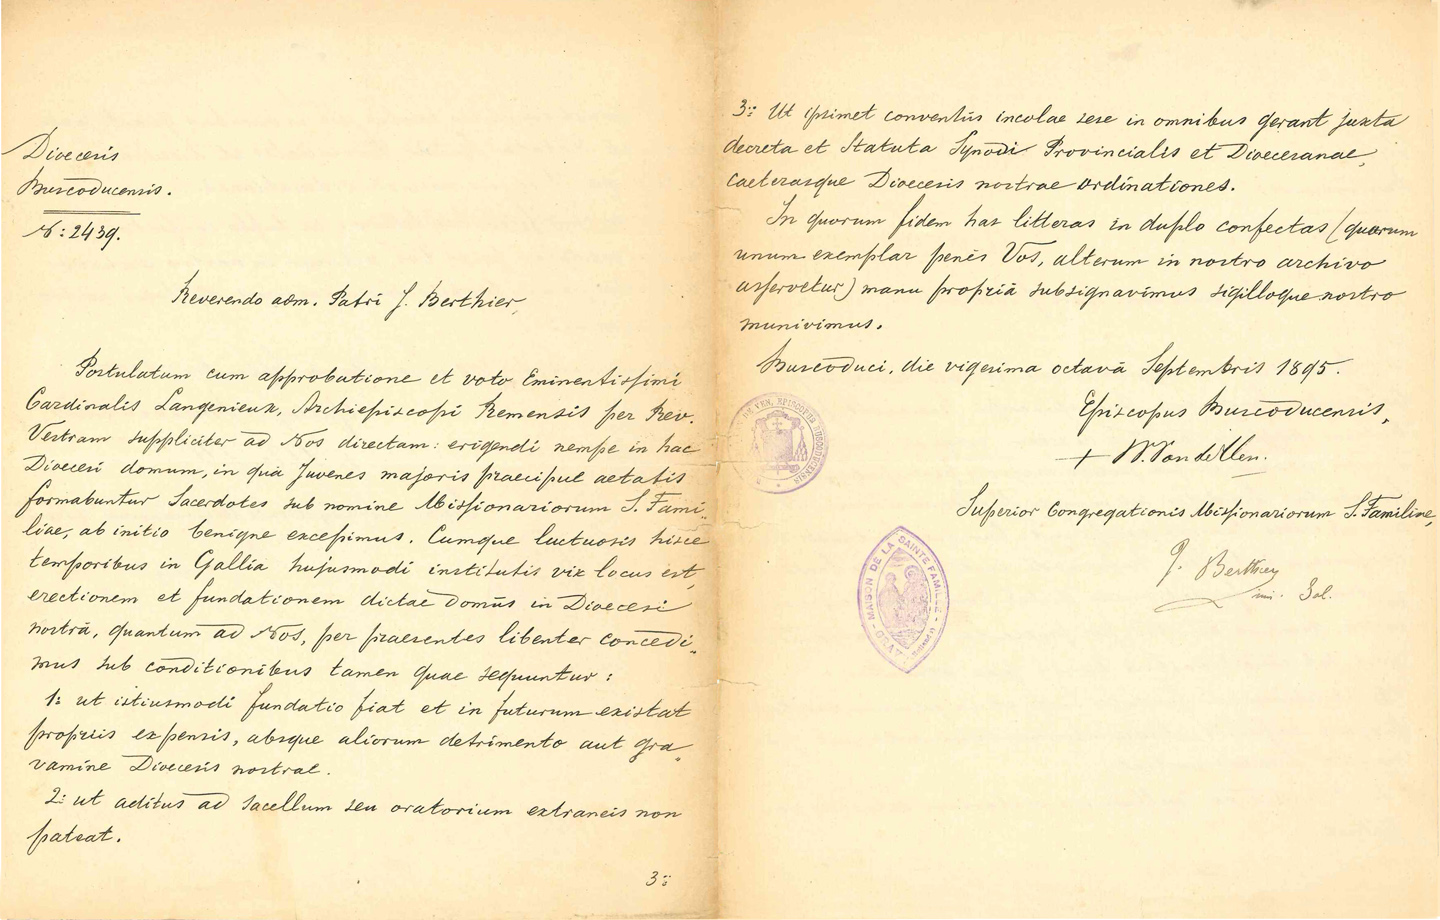 Dioecesis
Buscoducensis.
N: 2439.
Reverendo adm. Patri J. Berthier,
Postulatum cum approbatione et voto Eminentissimi
Cardinalis Langenieux, Archiepiscopi Remensis per Rev.
Vestram suppliciter ad Nos directam: erigendi nempe in hac
Dioecesi domum, in quâ Juvenes majoris praecipue aetatis
formabuntur Sacerdotes sub nomine Missionariorum S. Fami„
liae, ab initio benigne excepimus. Cumque luctuosis hisce
temporibus in Gallia hujusmodi institutis vix locus est,
erectionem et fundationem dictae domûs in Dioecesi
nostrâ, quantum ad Nos, per praesentes libenter concedi„
mus sub conditionibus tamen quae sequuntur:
1: ut istiusmodi fundatio fiat et in futurum existat
propriis expensis, absque aliorum detrimento aut gra„
vamine Dioecesis nostrae.
2: ut aditus ad sacellum seu oratorium extraneis non
pateat.
3:
3: Ut ipsimet conventûs incolae sese in omnibus gerant juxta
decreta et Statuta Synodi Provincialis et Dioecesanae,
caeterasque Dioecesis nostrae ordinationes.
In quorum fidem has litteras in duplo confectas (quorum
unum exemplar penès Vos, alterum in nostro archivo
asservetur) manu propriâ subsignavimus sigilloque nostro
munivimus.
Buscoduci, die vigesima octavâ Septembris 1895.
Episcopus Buscoducensis,
+ W. Van de Ven.
EPISCOPUS BUSCODUCENSIS
Superior Congregationis Missionariorum S. Familiae,
J. Berthier
MAISON DE LA SAINTE FAMILLE
GRAVE